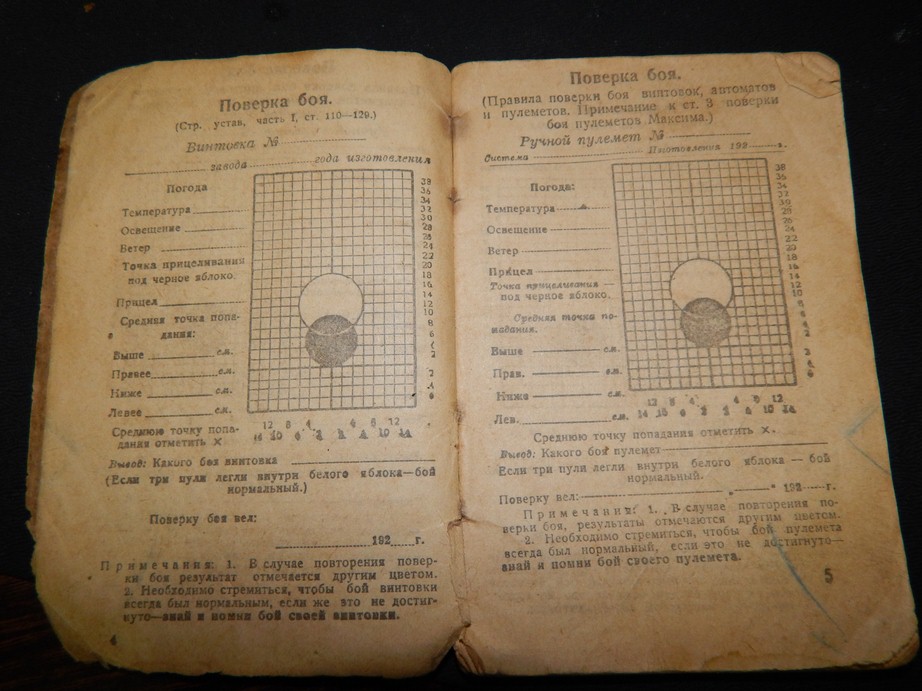 Поверка боя.
(Стр. устав, часть I, ст. 110—129.)
Винтовка №
завода года изготовления
Погода
Температура
Освещение
Ветер
Точка прицеливания
под черное яблоко
Прицел
Средняя точка попа-
дания:
Выше см.
Правее см.
Ниже см.
Левее см.
38
36
34
32
30
28
26
24
22
20
18
16
14
12
10
8
6
2
12 8 4 4 8 12
14 10 6 2 2 6 10 14
Среднюю точку попа-
дания отметить ×
Вывод: Какого боя винтовка
(Если три пули легли внутри белого яблока—бой
нормальный.)
Поверку боя вел:
192 г.
Примечания: 1. В случае повторения повер-
ки боя результат отмечается другим цветом.
2. Необходимо стремиться, чтобы бой винтовки
всегда был нормальным, если же это не достиг-
нуто—знай и помни бой своей винтовки.
4
Поверка боя.
(Правила поверки боя винтовок, автоматов
и пулеметов. Примечание к ст. 3 поверки
боя пулеметов Максима.)
Ручной пулемет №
Система Изготовления 192 г.
Погода:
Температура
Освещение
Ветер
Прицел
Точка прицеливания —
под черное яблоко.
Средняя точка по-
падания.
Выше см.
Прав. см.
Ниже см.
Лев. см.
38
36
34
32
30
28
26
24
22
20
18
16
14
12
10
8
2
12 8 4 4 8 12
14 10 6 2 2 6 10 14
Среднюю точку попадания отметить ×.
Вывод: Какого боя пулемет
Если три пули легли внутри белого яблока — бой
нормальный.
Поверку вел: 192 г.
Примечания: 1. В случае повторения по-
верки боя, результаты отмечаются другим цветом.
2. Необходимо стремиться, чтобы бой пулемета
всегда был нормальный, если это не достигнуто—
знай и помни бой своего пулемета.
5